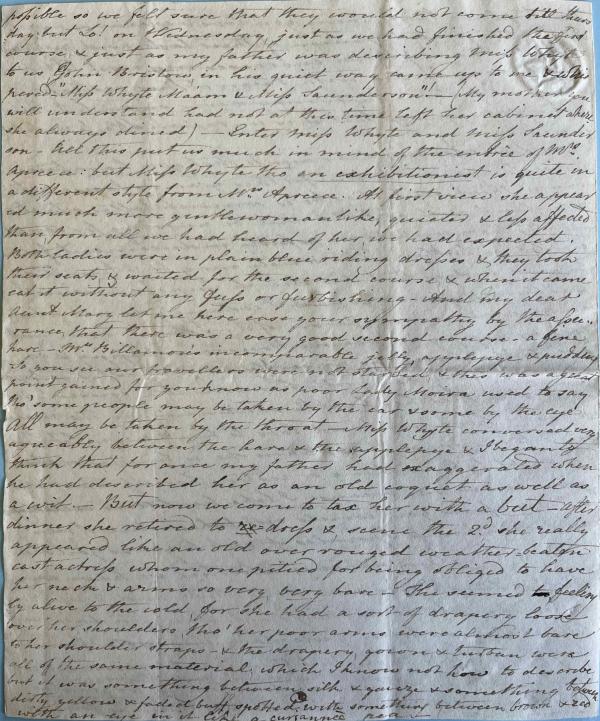 possible so we felt sure that they would not come till Thurs
day but Lo! on Wednesday, just as we had finished the first
course & just as my father was describing Miss Whyte
to us John Bristow in his quiet way came up to me & whis
pered "Miss Whyte Ma'am & Miss Saunderson" - (My mother you
will understand had not at this time left her cabinet where
she always dined) - Enter Miss Whyte and Miss Saunder
son - All this put us much in mind of the entrée of Mrs.
Apreece: but Miss Whyte tho an exhibitionest is quite in
a different style from Mrs Apreece. At first view she appear
ed much more gentlewomanlike, quieted & less affected
than from all we had heard of her we had expected.
Both ladies were in plain blue riding dresses & they took
their seats, & waited for the second course & when it came
eat it without any fuss or furbishing - And my dear
aunt Mary let me here ease your sympathy by the assu
rance, that there was a very good second course - a fine
hare - Mrs. Billamores incomparable jelly, applepye & pudding
So you see our travellers were not starved & this was a great
point gained for you know as poor Lady Moira used to say
tho' some people may be taken by the ear & some by the eye
All may be taken by the throat - Miss Whyte conversed very
agreeably between the hare & the applepye & I began to
think that for once my father had exaggerated when
he had described her as an old coquet as well as
a wit. - But now we come to tax her with a but - after
dinner she retired to dress & scene the 2d she really
appeared like an old over rouged weather-beaten
cast actress whom one pitied for being obliged to have
her neck & arms so very very bare - She seemed feeling
ly alive to the cold for she had a sort of drapery loose
over her shoulders tho' her poor arms were almost bare
to her shoulder straps - & the drapery, gown & turban were
all of the same material which I know not how to describe
but it was something between silk & gauze & something between
dirty yellow & faded buff spotted with something between brown & red
with an eye in it like a pea -